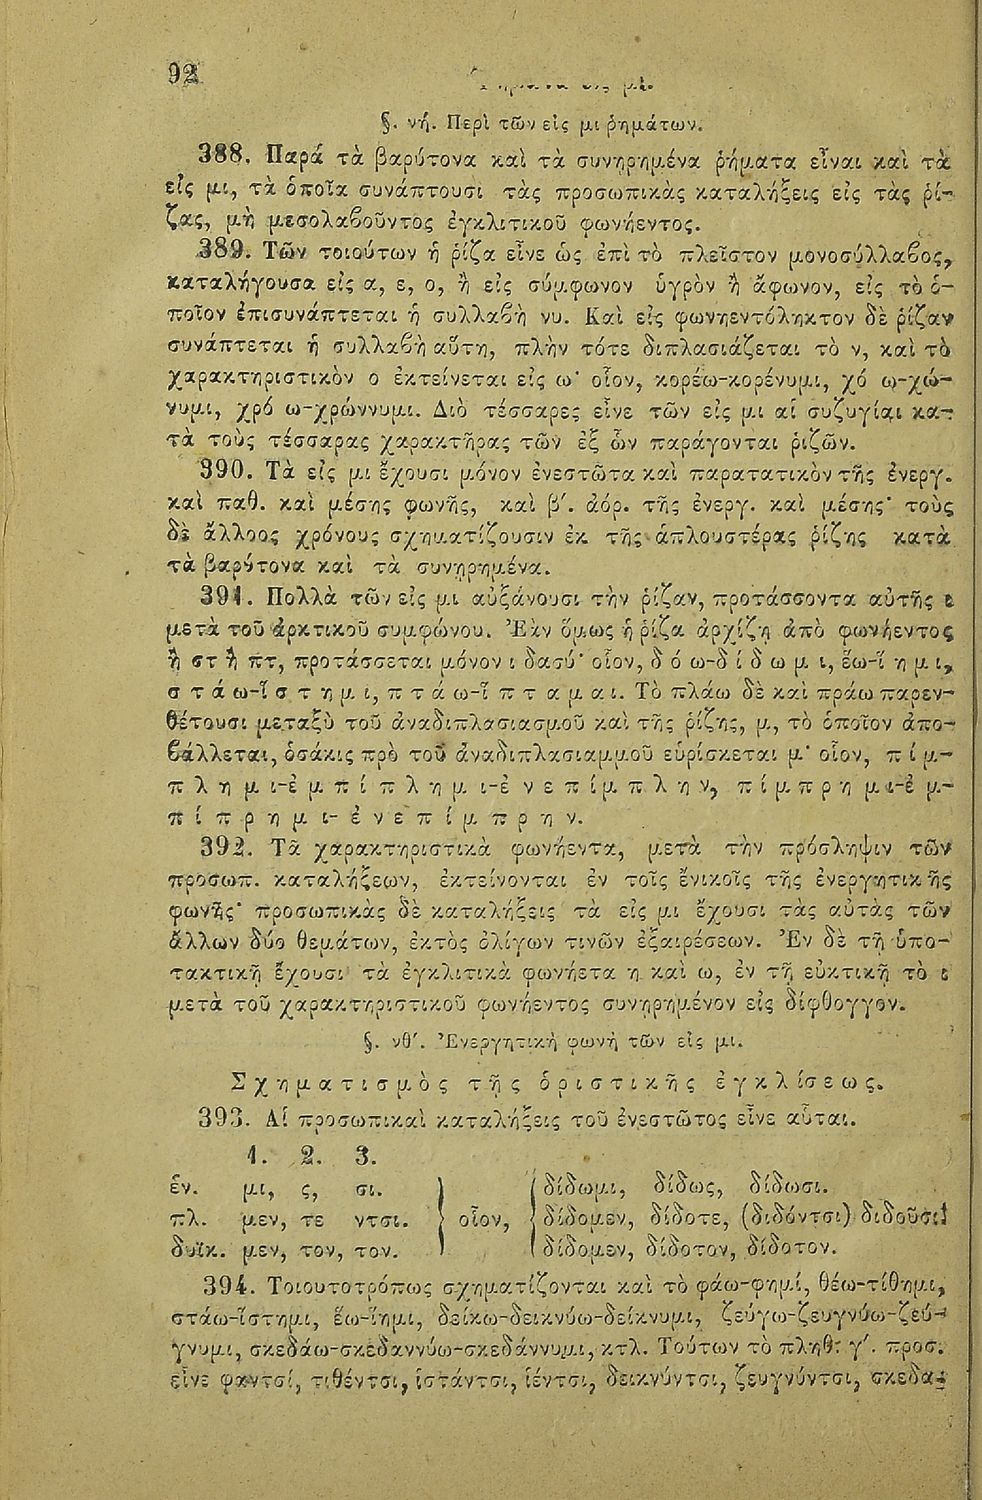 92
§. νή. Περὶ τῶν εἰς μι ῥημάτων.
388. Παρὰ τὰ βαρύτονα καὶ τὰ συνῃρημένα ῥήματα εἶναι καὶ τὰ
εἰς μι, τὰ ὁποῖα συνάπτουσι τὰς προσωπικὰς καταλήξεις εἰς τὰς ῥί-
ζας, μὴ μεσολαβοῦντος ἐγκλιτικοῦ φωνήεντος.
389. Τῶν τοιούτων ἡ ῥίζα εἶνε ὡς ἐπὶ τὸ πλεῖστον μονοσύλλαβος,
καταλήγουσα εἰς α, ε, ο, ἢ εἰς σύμφωνον ὑγρὸν ἢ ἄφωνον, εἰς τὸ ὁ-
ποῖον ἐπισυνάπτεται ἡ συλλαβὴ νυ. Καὶ εἰς φωνηεντόληκτον δὲ ῥίζαν
συνάπτεται ἡ συλλαβὴ αὕτη, πλὴν τότε διπλασιάζεται τὸ ν, καὶ τὸ
χαρακτηριστικὸν ο ἐκτείνεται εἰς ω· οἷον, κορέω-κορένυμι, χό ω-χώ-
νυμι, χρό ω-χρώννυμι. Διὸ τέσσαρες εἶνε τῶν εἰς μι αἱ συζυγίαι κα-
τὰ τοὺς τέσσαρας χαρακτῆρας τῶν ἐξ ὧν παράγονται ῥιζῶν.
390. Τὰ εἰς μι ἔχουσι μόνον ἐνεστῶτα καὶ παρατατικὸν τῆς ἐνεργ.
καὶ παθ. καὶ μέσης φωνῆς, καὶ β΄. ἀόρ. τῆς ἐνεργ. καὶ μέσης· τοὺς
δὲ ἄλλοος χρόνους σχηματίζουσιν ἐκ τῆς ἁπλουστέρας ῥίζης κατὰ
τὰ βαρύτονα καὶ τὰ συνῃρημένα.
391. Πολλὰ τῶν εἰς μι αὐξάνουσι τὴν ῥίζαν, προτάσσοντα αὐτῆς ι
μετὰ τοῦ ἀρκτικοῦ συμφώνου. Ἐὰν ὅμως ἡ ῥίζα ἀρχίζῃ ἀπὸ φωνήεντος
ἢ στ ἢ πτ, προτάσσεται μόνον ι δασύ· οἷον, δ ό ω-δ ί δ ω μ ι, ἕω-ἵ η μ ι,
σ τ ά ω-ἵ σ τ η μ ι, π τ ά ω-ἵ π τ α μ α ι. Τὸ πλάω δὲ καὶ πράω παρεν-
θέτουσι μεταξὺ τοῦ ἀναδιπλασιασμοῦ καὶ τῆς ῥίζης, μ, τὸ ὁποῖον ἀπο-
βάλλεται, ὁσάκις πρὸ τοῦ ἀναδιπλασιαμμοῦ εὑρίσκεται μ· οἷον, π ί μ-
π λ η μ ι-ἐ μ π ί π λ η μ ι-ἐ ν ε π ί μ π λ η ν, π ί μ π ρ η μ ι-ἐ μ-
π ί π ρ η μ ι- ἐ ν ε π ί μ π ρ η ν.
392. Τὰ χαρακτηριστικὰ φωνήεντα, μετὰ τὴν πρόσληψιν τῶν
προσωπ. καταλήξεων, ἐκτείνονται ἐν τοῖς ἑνικοῖς τῆς ἐνεργητικῆς
φωνῆς· προσωπικὰς δὲ καταλήξεις τὰ εἰς μι ἔχουσι τὰς αὐτὰς τῶν
ἄλλων δύο θεμάτων, ἐκτὸς ὀλίγων τινῶν ἐξαιρέσεων. Ἐν δὲ τῇ ὑπο-
τακτικῇ ἔχουσι τὰ ἐγκλιτικὰ φωνήετα η καὶ ω, ἐν τῇ εὐκτικῇ τὸ ι
μετὰ τοῦ χαρακτηριστικοῦ φωνήεντος συνῃρημένον εἰς δίφθογγον.
§. νθ΄. Ἐνεργητικὴ φωνὴ τῶν εἰς μι.
Σ χ η μ α τ ι σ μ ὸ ς τ ῆ ς ὁ ρ ι σ τ ι κ ῆ ς ἐ γ κ λ ί σ ε ω ς.
393. Αἱ προσωπικαὶ καταλήξεις τοῦ ἐνεστῶτος εἶνε αὗται.
1. 2. 3.
ἑν. μι, ς, σι. δίδωμι, δίδως, δίδωσι.
πλ. μεν, τε ντσι. οἷον, δίδομεν, δίδοτε, (διδόντσι) διδοῦσι
δυϊκ. μεν, τον, τον. δίδομεν, δίδοτον, δίδοτον.
394. Τοιουτοτρόπως σχηματίζονται καὶ τὸ φάω-φημί, θέω-τίθημι,
στάω-ἵστημι, ἕω-ἵημι, δείκω-δεικνύω-δείκνυμι, ζεύγω-ζευγνύω-ζεύ-
γνυμι, σκεδάω-σκεδαννύω-σκεδάννυμι, κτλ. Τούτων τὸ πληθ. γ΄. προσ.
εἶνε φαντσί, τιθέντσι, ἱστάντσι, ἱέντσι, δεικνύντσι, ζευγνύντσι, σκεδα-